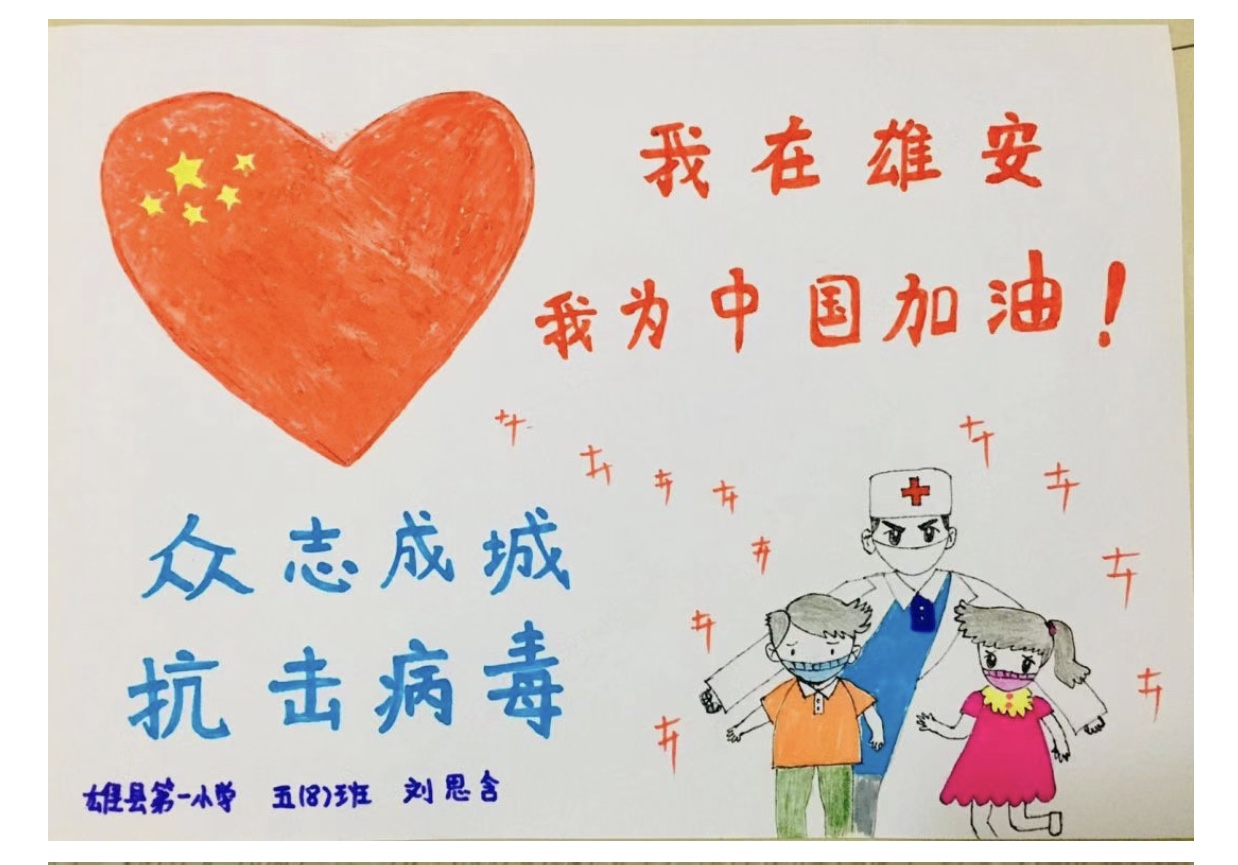 我在雄安
我为中国加油!
众志成城
抗击病毒
雄县第一小学 五(8)班 刘思含